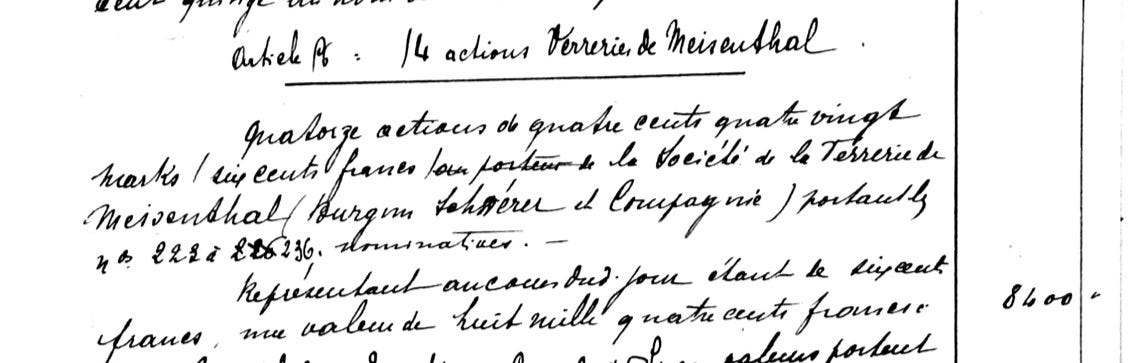 cent quinze au nom de
Article 18 : 14 actions Verreries de Meisenthal .
Quatorze actions de quatre cents quatre vingt
marks / six cents francs / au porteur de la Société de la Verrerie de
Meisenthal ( Burgun Schverer et Compagnie ) portant les
nos 222 à 226 236. nominatives . —
Représentant au cours dud. jour étant de six cents
francs, une valeur de huit mille quatre cents francs. 8400 "
valeurs portent